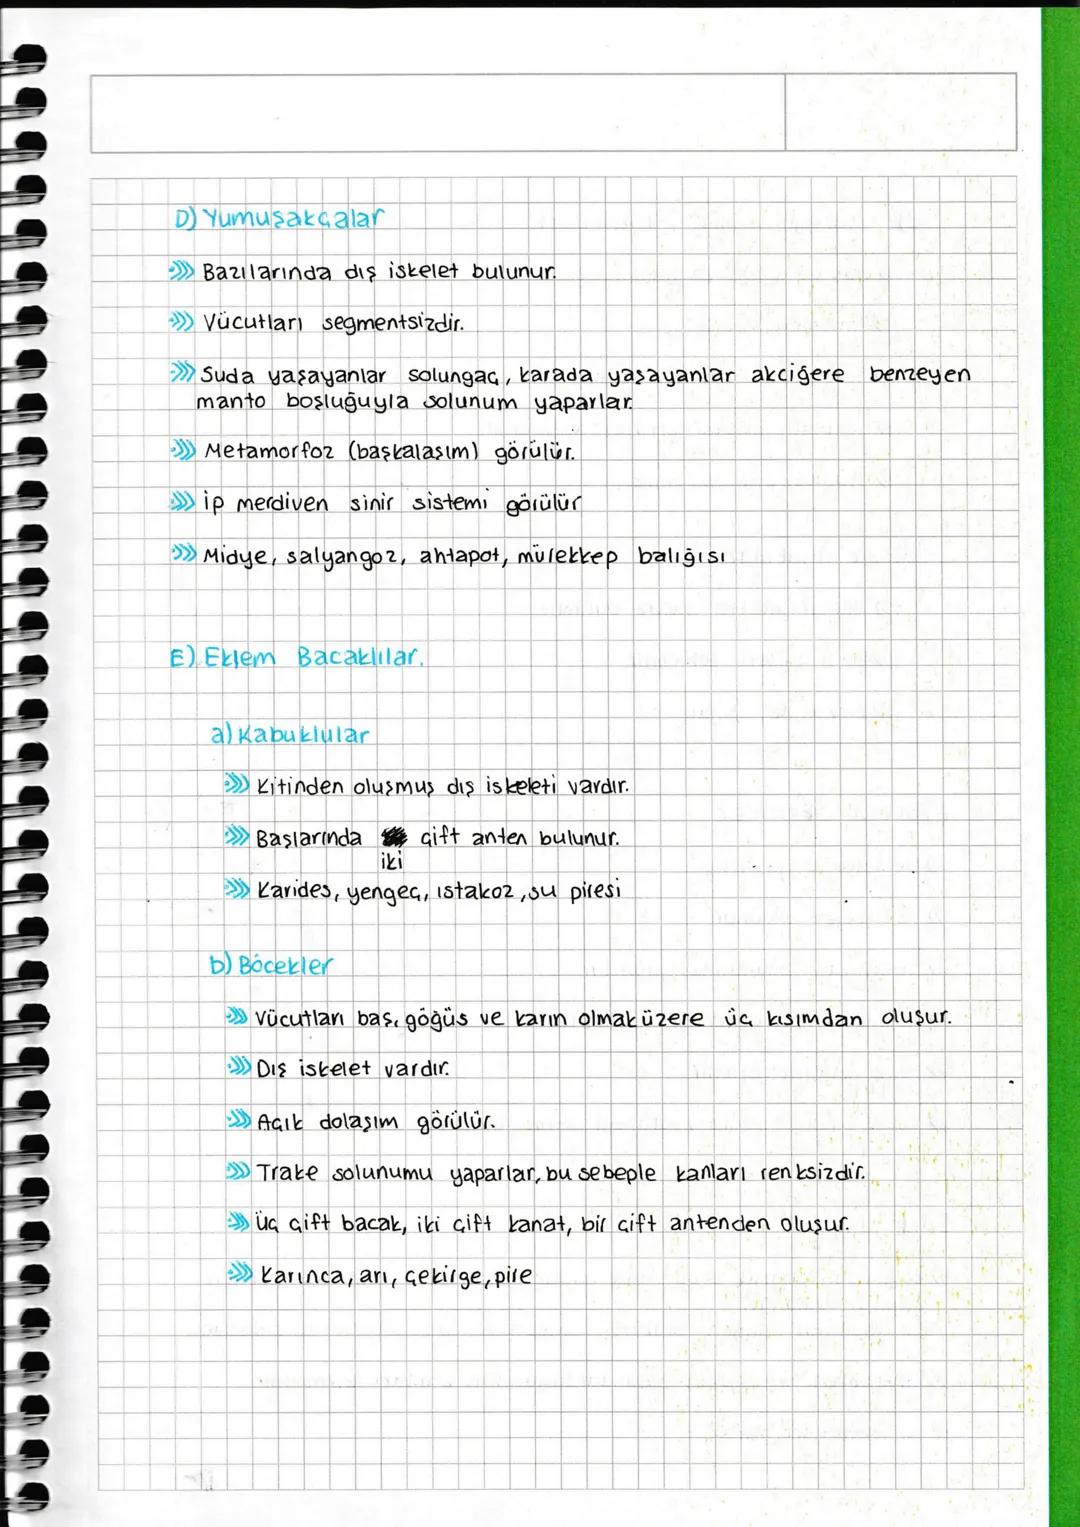 D) Yumuşakçalar
Bazılarında dış iskelet bulunur.
Vücutları segmentsizdir.
Suda yaşayanlar solungaç, karada yaşayanlar akciğere benzeyen
manto boşluğuyla solunum yaparlar.
Metamorfoz (başkalaşım) görülür.
İp merdiven sinir sistemi görülür
Midye, salyangoz, ahtapot, mürekkep balığısı
E) Eklem Bacaklılar.
a) Kabuklular
Kitinden oluşmuş dış iskeleti vardır.
Başlarında çift anten bulunur.
iki
Karides, yengeç, ıstakoz, su piresi
b) Böcekler
Vücutları baş, göğüs ve karın olmak üzere üç kısımdan oluşur.
Dış iskelet vardır.
Açık dolaşım görülür.
Trake solunumu yaparlar, bu sebeple kanları renksizdir.
Üç çift bacak, iki çift kanat, bir çift antenden oluşur.
Karınca, arı, çekirge, pire